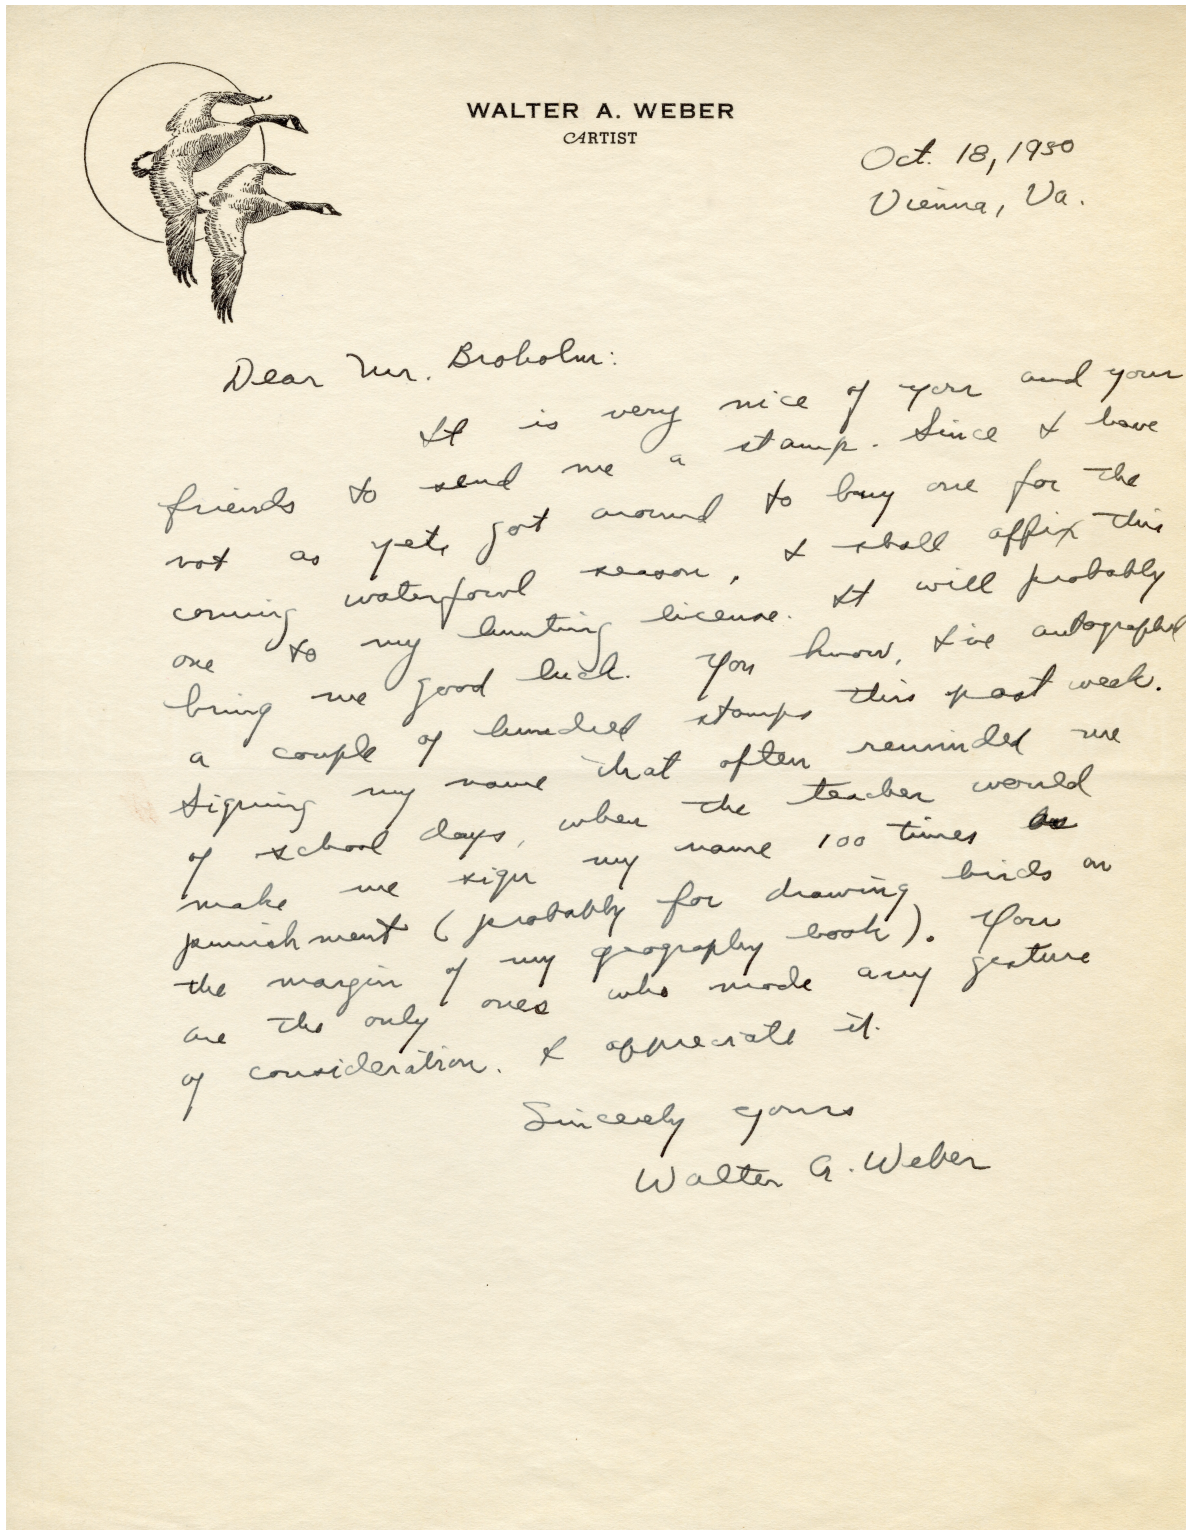 WALTER A. WEBER
ARTIST
Oct. 18, 1950
Vienna, Va.
Dear Mr. Broholm:
It is very nice of you and your
friends to send me a stamp. Since I have
not as yet, got around to buy one for the
coming waterfowl season, I shall affix this
one to my hunting license. It will probably
bring me good luck. You know, I've autographed
a couple of hundred stamps this past week.
Signing my name that often reminded me
of school days, when the teacher would
make me sign my name 100 times as
punishment (probably for drawing birds on
the margin of my geography book). You
are the only ones who made any gesture
of consideration. I appreciate it.
Sincerely yours
Walter A. Weber